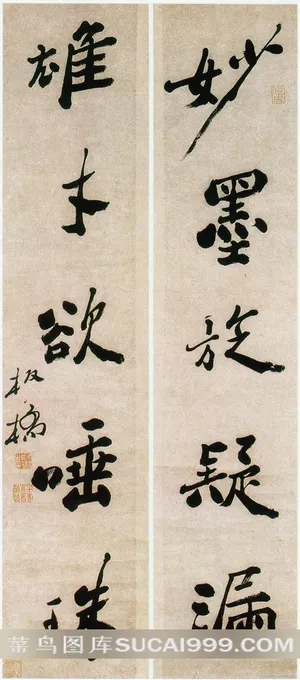 妙墨旋疑漏
雄才欲唾珠
板橋
菜鸟图库SUCAI999.COM